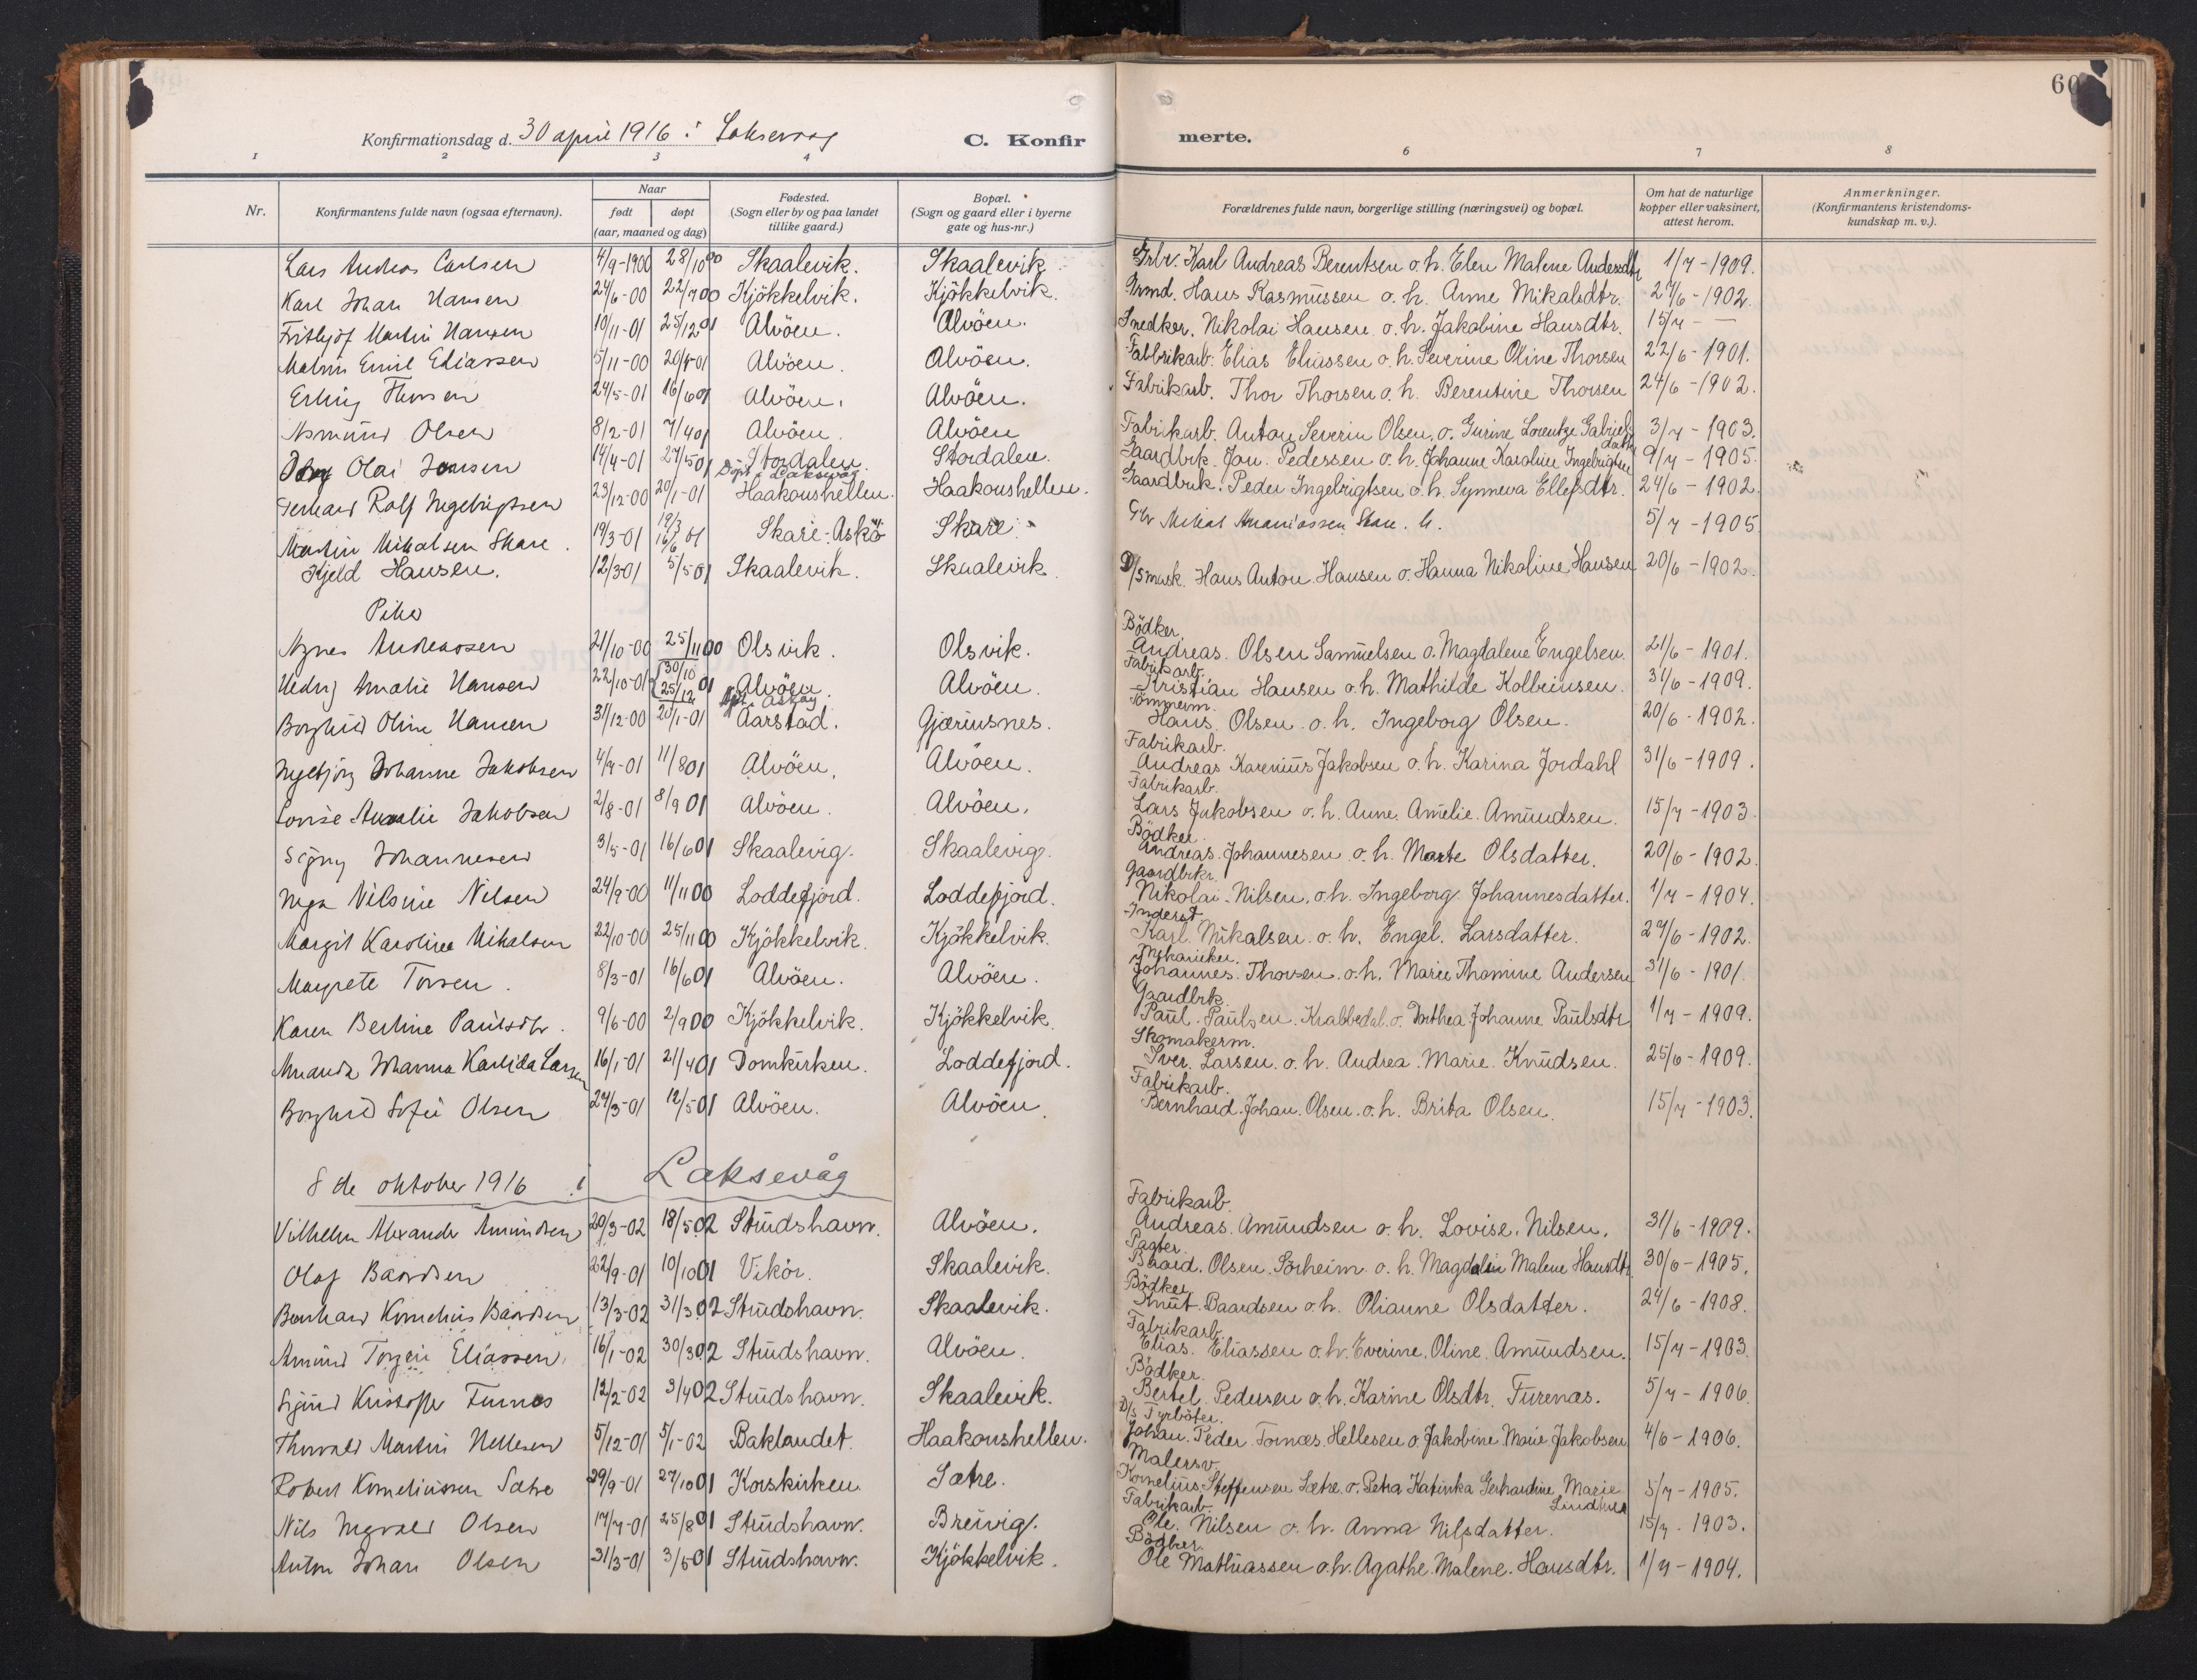 60
Konfirmationsdag d. 30 april 1916 i Laksevaag
C. Konfirmerte.
1 2 3 4 6 7 8
Nr. Konfirmantens fulde navn (ogsaa efternavn). Naar født døpt (aar, maaned og dag) Fødested. (Sogn eller by og paa landet tillike gaard.) Bopæl. (Sogn og gaard eller i byerne gate og hus-nr.) Forældrenes fulde navn, borgerlige stilling (næringsvei) og bopæl. Om hat de naturlige kopper eller vaksinert, attest herom. Anmerkninger. (Konfirmantens kristendomskundskap m. v.).
Lars Andreas Carlsen 4/9-1900 28/10 00 Skaalevik. Skaalevik Grbr. Karl Andreas Berentsen o.h. Elen Malene Andersdtr 1/7-1909.
Karl Johan Hansen 24/6-00 22/7 00 Kjökkelvik. Kjökkelvik. Grmd. Hans Rasmussen o.h. Anne Mikalsdtr. 24/6-1902.
Fritbjof Martin Hansen 10/11-01 25/12 01 Alvöen. Alvöen. Snedker. Nikolai Hansen o.h. Jakobine Hansdtr. 15/7 - —
Malvin Emil Eliassen 5/11-00 20/8 01 Alvöen. Alvöen. Fabbrikarb. Elias Eliassen o.h. Severine Oline Thorsen 22/6-1901.
Erling Thorsen 24/5-01 16/6 01 Alvöen. Alvöen. Fabrikarb. Thor Thorsen o.h. Berentine Thorsen 24/6-1902.
Asmund Olsen 8/2-01 7/4 01 Alvöen. Alvöen Fabrikarb. Anton Severin Olsen, o. Gurine Lorentze Gabrielsdatter 3/7-1903.
Olai Jonsen 14/4-01 27/5 01 Stordalen. Döpt i Laksevåg Stordalen. Gaardbrk. Jon Pedersen o.h. Johanne Karoline Ingebrigtsen 9/7-1905.
Gerhard Rolf Ingebrigtsen 23/12-00 20/1-01 Haakonshellen. Haakonshellen. Gaardbruk. Peder Ingebrigtsen o.h. Synneva Ellefsdtr. 24/6-1902.
Martin Mikalsen Skare. 19/3-01 19/3 16/6 01 Skare: Askö Skare. Gbr Mikal Ananiassen Skare. h. 5/7-1905
Kjeld Hansen. 12/3-01 5/5 01 Skaalevik. Skaalevik D/S mask. Hans Anton Hansen o. Hanna Nikoline Hansen 20/6-1902.
Piker
Agnes Andreassen 21/10-00 25/11 00 Olsvik. Olsvik. Bödker. Andreas Olsen Samuelsen o. Magdalene Engelsen. 21/6-1901.
Hedvig Amalie Hansen 22/10-01 30/10 25/12 01 Alvöen. Alvöen. Fabrikarb. Kristian Hansen o.h. Mathilde Kolbeinsen. 31/6-1909.
Borghild Oline Hansen 31/12-00 20/1-01 Aarstad. Gjæriusnes. Tömmerm. Hans Olsen o.h. Ingeborg Olsen. 20/6-1902.
Ingebjörg Johanne Jakobsen 4/7-01 11/8 01 Alvöen. Alvöen. Fabrikarb. Andreas Karenius Jakobsen o.h. Karina Jordahl 31/6-1909.
Lovise Amalie Jakobsen 2/8-01 8/9 01 Alvöen. Alvöen. Fabrikarb. Lars Jakobsen o.h. Anne Amelie Amundsen. 15/7-1903
Signy Johannesen 3/5-01 16/6 01 Skaalevig. Skaalevig. Bödker. Andreas Johannesen o.h. Marte Olsdatter. 20/6-1902.
Inga Nilsine Nilsen 24/9-00 11/11 00 Loddefjord. Loddefjord. Gaardbrkr. Nikolai Nilsen, o.h. Ingeborg Johannesdatter. 1/7-1904.
Margit Karoline Mikalsen 22/10-00 25/11 00 Kjökkelvik. Kjökkelvik. Inderst. Karl Mikalsen o.h. Engel Larsdatter. 24/6-1902.
Margrete Torsen. 8/3-01 16/6 01 Alvöen. Alvöen. Mekaniker. Johannes Thorsen o.h. Marie Thomine Andersen 31/6-1901.
Karen Bertine Paulsdtr. 9/6-00 2/9 00 Kjökkelvik. Kjökkelvik. Gaardbrk. Paul Paulsen Krabbedal o. Dorthea Johanne Paulsdtr 1/7-1909.
Amanda Johanna Karlida Larsen 16/1-01 21/4 01 Domkirken. Loddefjord. Skomakerm. Iver Larsen o.h. Andrea Marie Knudsen. 25/6-1909.
Borghild Sofie Olsen 24/3-01 12/5 01 Alvöen. Alvöen. Fabrikarb. Bernhard Johan Olsen o.h. Brita Olsen. 15/7-1903.
8de oktober 1916 i Laksevåg
Vilhelm Alexander Amundsen 20/3-02 18/5 02 Studshavn. Alvöen. Fabrikarb. Andreas Amundsen o.h. Lovise Nilsen. 31/6-1909.
Olaf Baardsen 22/9-01 10/10 01 Vikör. Skaalevik. Pagter. Baard Olsen Sörheim o.h. Magdalin Malene Hansdtr 30/6-1905.
Bernhard Kornelius Baardsen 13/3-02 31/3 02 Studshavn. Skaalevik. Bödker Knut Baardsen o.h. Olianne Olsdatter. 24/6-1908.
Amund Torgeir Eliassen. 16/1-02 30/3 02 Studshavn. Alvöen. Fabrikarb. Elias Eliassen o.h. Everine Oline Amundsen. 15/7-1903.
Sjurd Kristoffer Furnes 12/2-02 3/4 02 Studshavn. Skaalevik. Bödker. Bertel Pedersen o.h. Karine Olsdtr. Furenæs. 5/7-1906.
Thorvald Martin Hellesen 5/12-01 5/1-02 Baklandet. Haakonshellen. D/S Fyrböter. Johan Peder Tornæs Hellesen o. Jakobine Marie Jakobsen 4/6-1906.
Robert Korneliussen Sætre 29/9-01 27/10 01 Korskirken. Sætre. Malersv. Kornelius Steffensen Sætre o. Petra Katinka Gerhardine Marie 5/7-1905.
Nils Ingvald Olsen 17/7-01 25/8 01 Studshavn. Breivig. Fabrikarb. Ole Nilsen o.h. Anna Nilsdatter. 15/7-1903.
Anton Johan Olsen 31/3-01 3/5 01 Studshavn. Kjökkelvik. Bödker. Ole Mathiassen o.h. Agathe Malene Hansdtr. 1/7-1904.